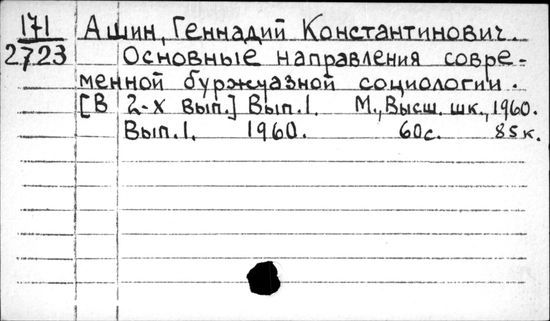 171 Ашин, Геннадий Константинович.
2723 Основные направления совре-
менной буржуазной социологии.
[В 2-х вып.] Вып.1. М., Высш. шк., 1960.
Вып.1. 1960. 60с. 85к.